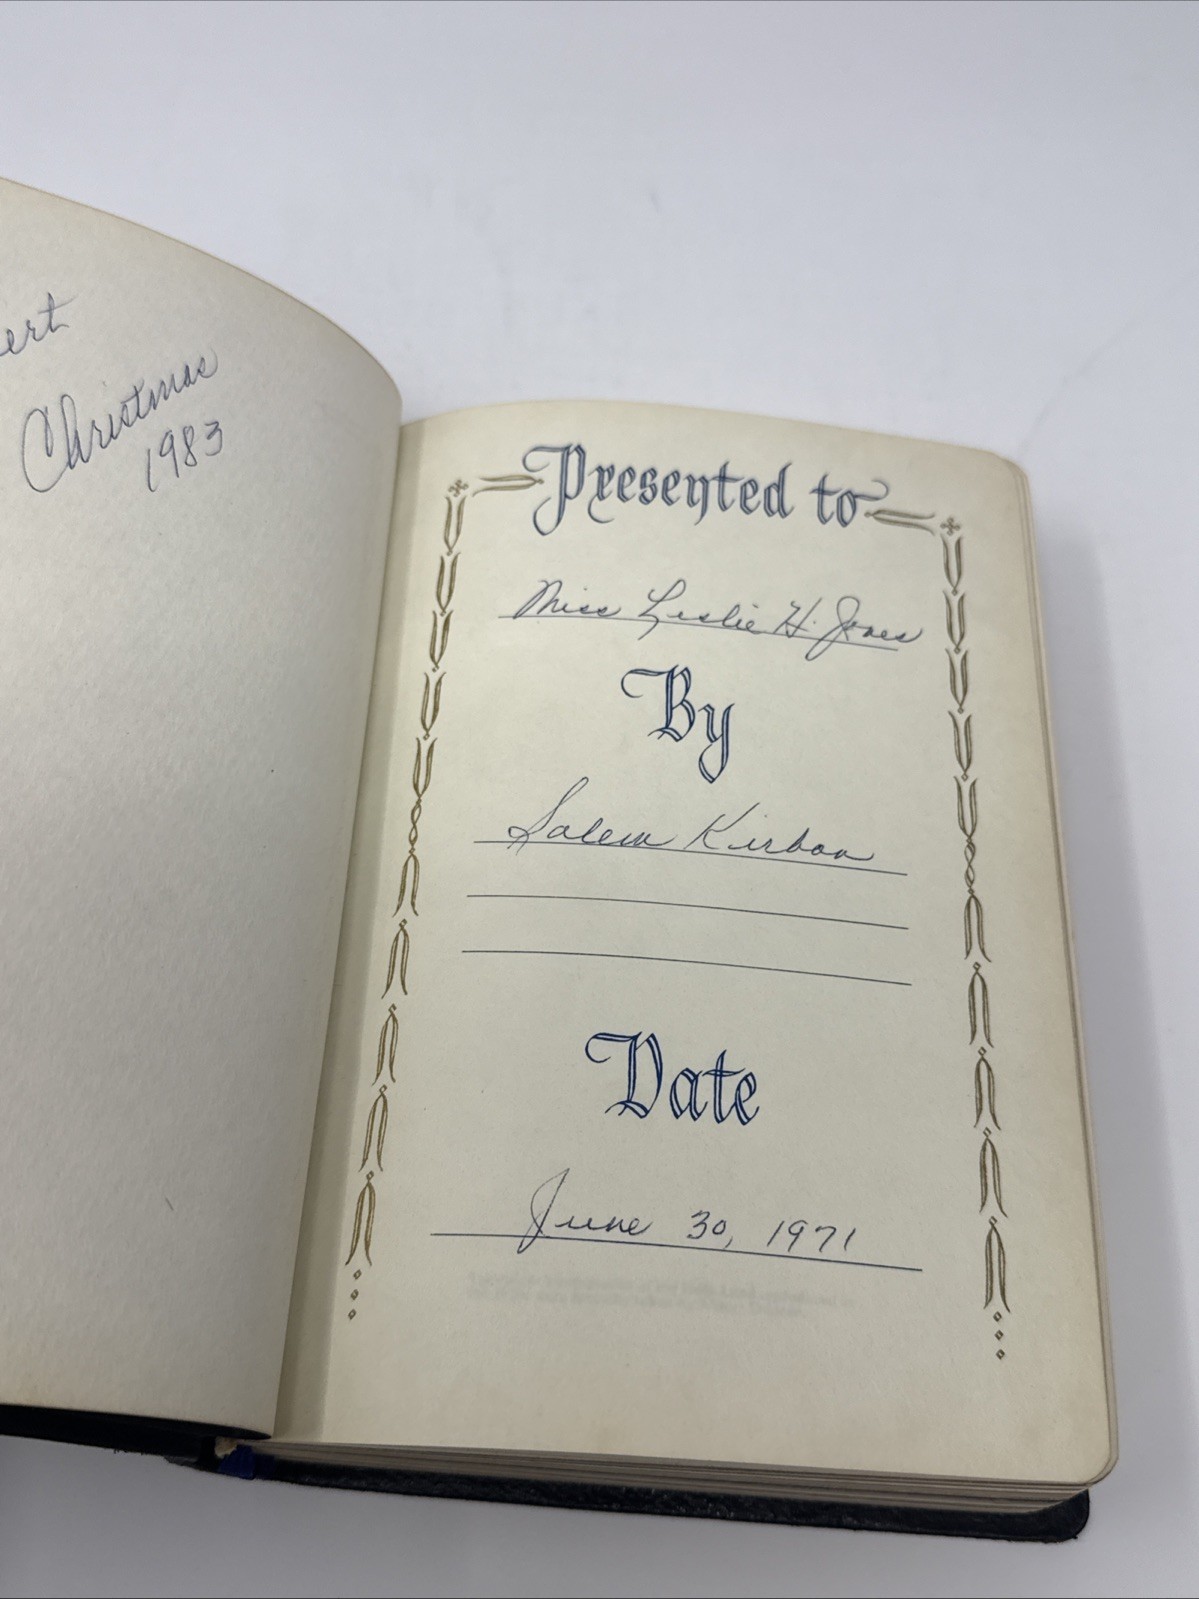 Christmas
1983
Presented to
Miss Leslie H. Jones
By
Salem Kirban
Date
June 30, 1971